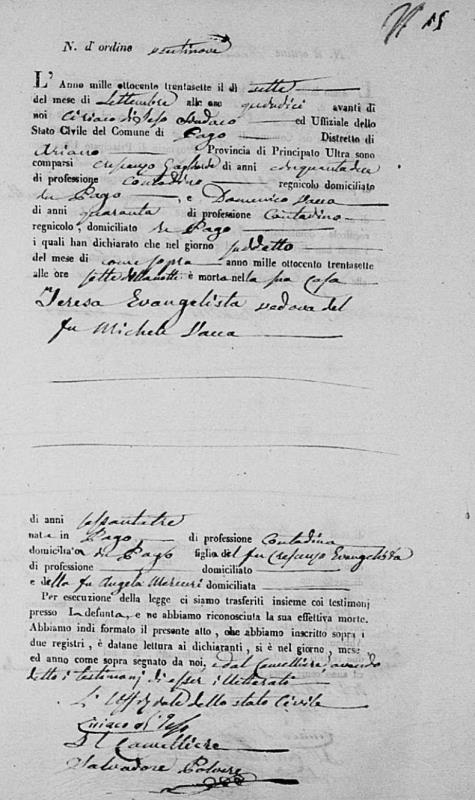 15
N. d'ordine ventinove
L'Anno mille ottocento trentasette il dì sette
del mese di Settembre alle ore quindici avanti di
noi Ciriaco Sindaco ed Uffiziale dello
Stato Civile del Comune di Pago Distretto di
Ariano Provincia di Principato Ultra sono
comparsi Crescenzo Gagliarde di anni cinquantadue
di professione Contadino regnicolo domiciliato
in Pago, e Domenico Vacca
di anni quaranta di professione Contadino
regnicolo, domiciliato in Pago
i quali han dichiarato che nel giorno suddetto
del mese di come sopra anno mille ottocento trentasette
alle ore sette è morta nella sua Casa
Teresa Evangelista vedova del
fu Michele Vacca
di anni sessantatre
nata in Pago di professione Contadina
domiciliata in Pago figlia del fu Crescenzo Evangelista
di professione domiciliato
e della fu Angela Mercuri domiciliata
Per esecuzione della legge ci siamo trasferiti insieme coi testimonj
presso La defunta, e ne abbiamo riconosciuta la sua effettiva morte.
Abbiamo indi formato il presente atto, che abbiamo inscritto sopra i
due registri, è datane lettura ai dichiaranti, si è nel giorno, mese
ed anno come sopra segnato da noi, e dal Cancelliere, avendo
detto i testimonj d'esser illetterati
L'Uff.le dello stato Civile
Ciriaco
Il Cancelliere
Salvadore Polvere